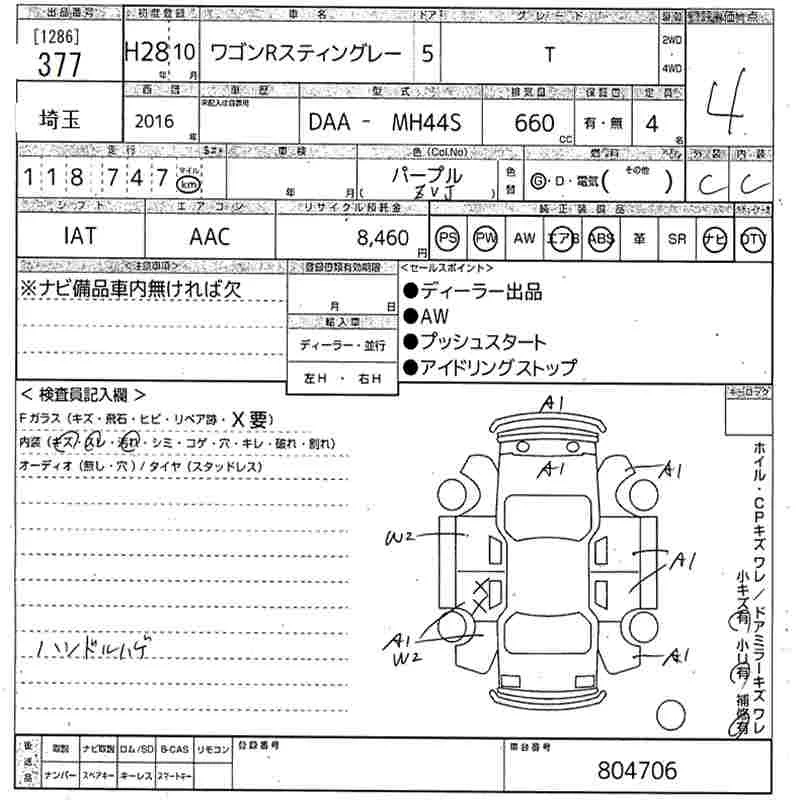 出品番号 初度登録 車名 ドア グレード 評価点
[1286]
377 H28 10 ワゴンRスティングレー 5 T 2WD 4WD 4
年 月
車歴 型式 排気量 保証書 定員
埼玉 2016 年 DAA - MH44S 660 CC 有・無 4 名
走行 車検 色(Col.No) 燃料 外装 内装
118747 マイル km 年 月 パープル 色替 G・D・電気( その他 ) C C
( ZVJ )
シフト エアコン リサイクル預託金 純正装備品
IAT AAC 8,460 円 PS PW AW エアB ABS 革 SR ナビ DTV
<注意事項> <セールスポイント>
※ナビ備品車内無ければ欠 月 日 ●ディーラー出品
輸入車 ●AW
ディーラー・並行 ●プッシュスタート
左H ・ 右H ●アイドリングストップ
<検査員記入欄>
Fガラス(キズ・飛石・ヒビ・リペア跡・X要)
内装(キズ・スレ・汚れ・シミ・コゲ・穴・キレ・破れ・割れ)
オーディオ(無し・穴)/タイヤ(スタッドレス)
ハンドルハゲ
A1
A1
A1
W2
A1
A1
W2
A1
ホイル・CPキズワレ/ドアミラーキズワレ
小キズ有 小U有 補修有
後送品 取説 ナビ取説 ロム/SD B-CAS リモコン 登録番号 車台番号
ナンバー スペアキー キーレス スマートキー 804706